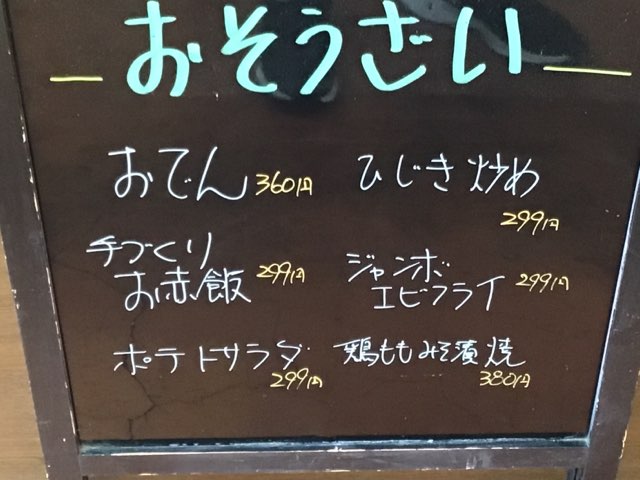 おそうざい
おでん 360円
ひじき炒め
299円
手づくり
お赤飯 299円
ジャンボ
エビフライ 299円
ポテトサラダ
299円
鶏ももみそ漬焼
380円